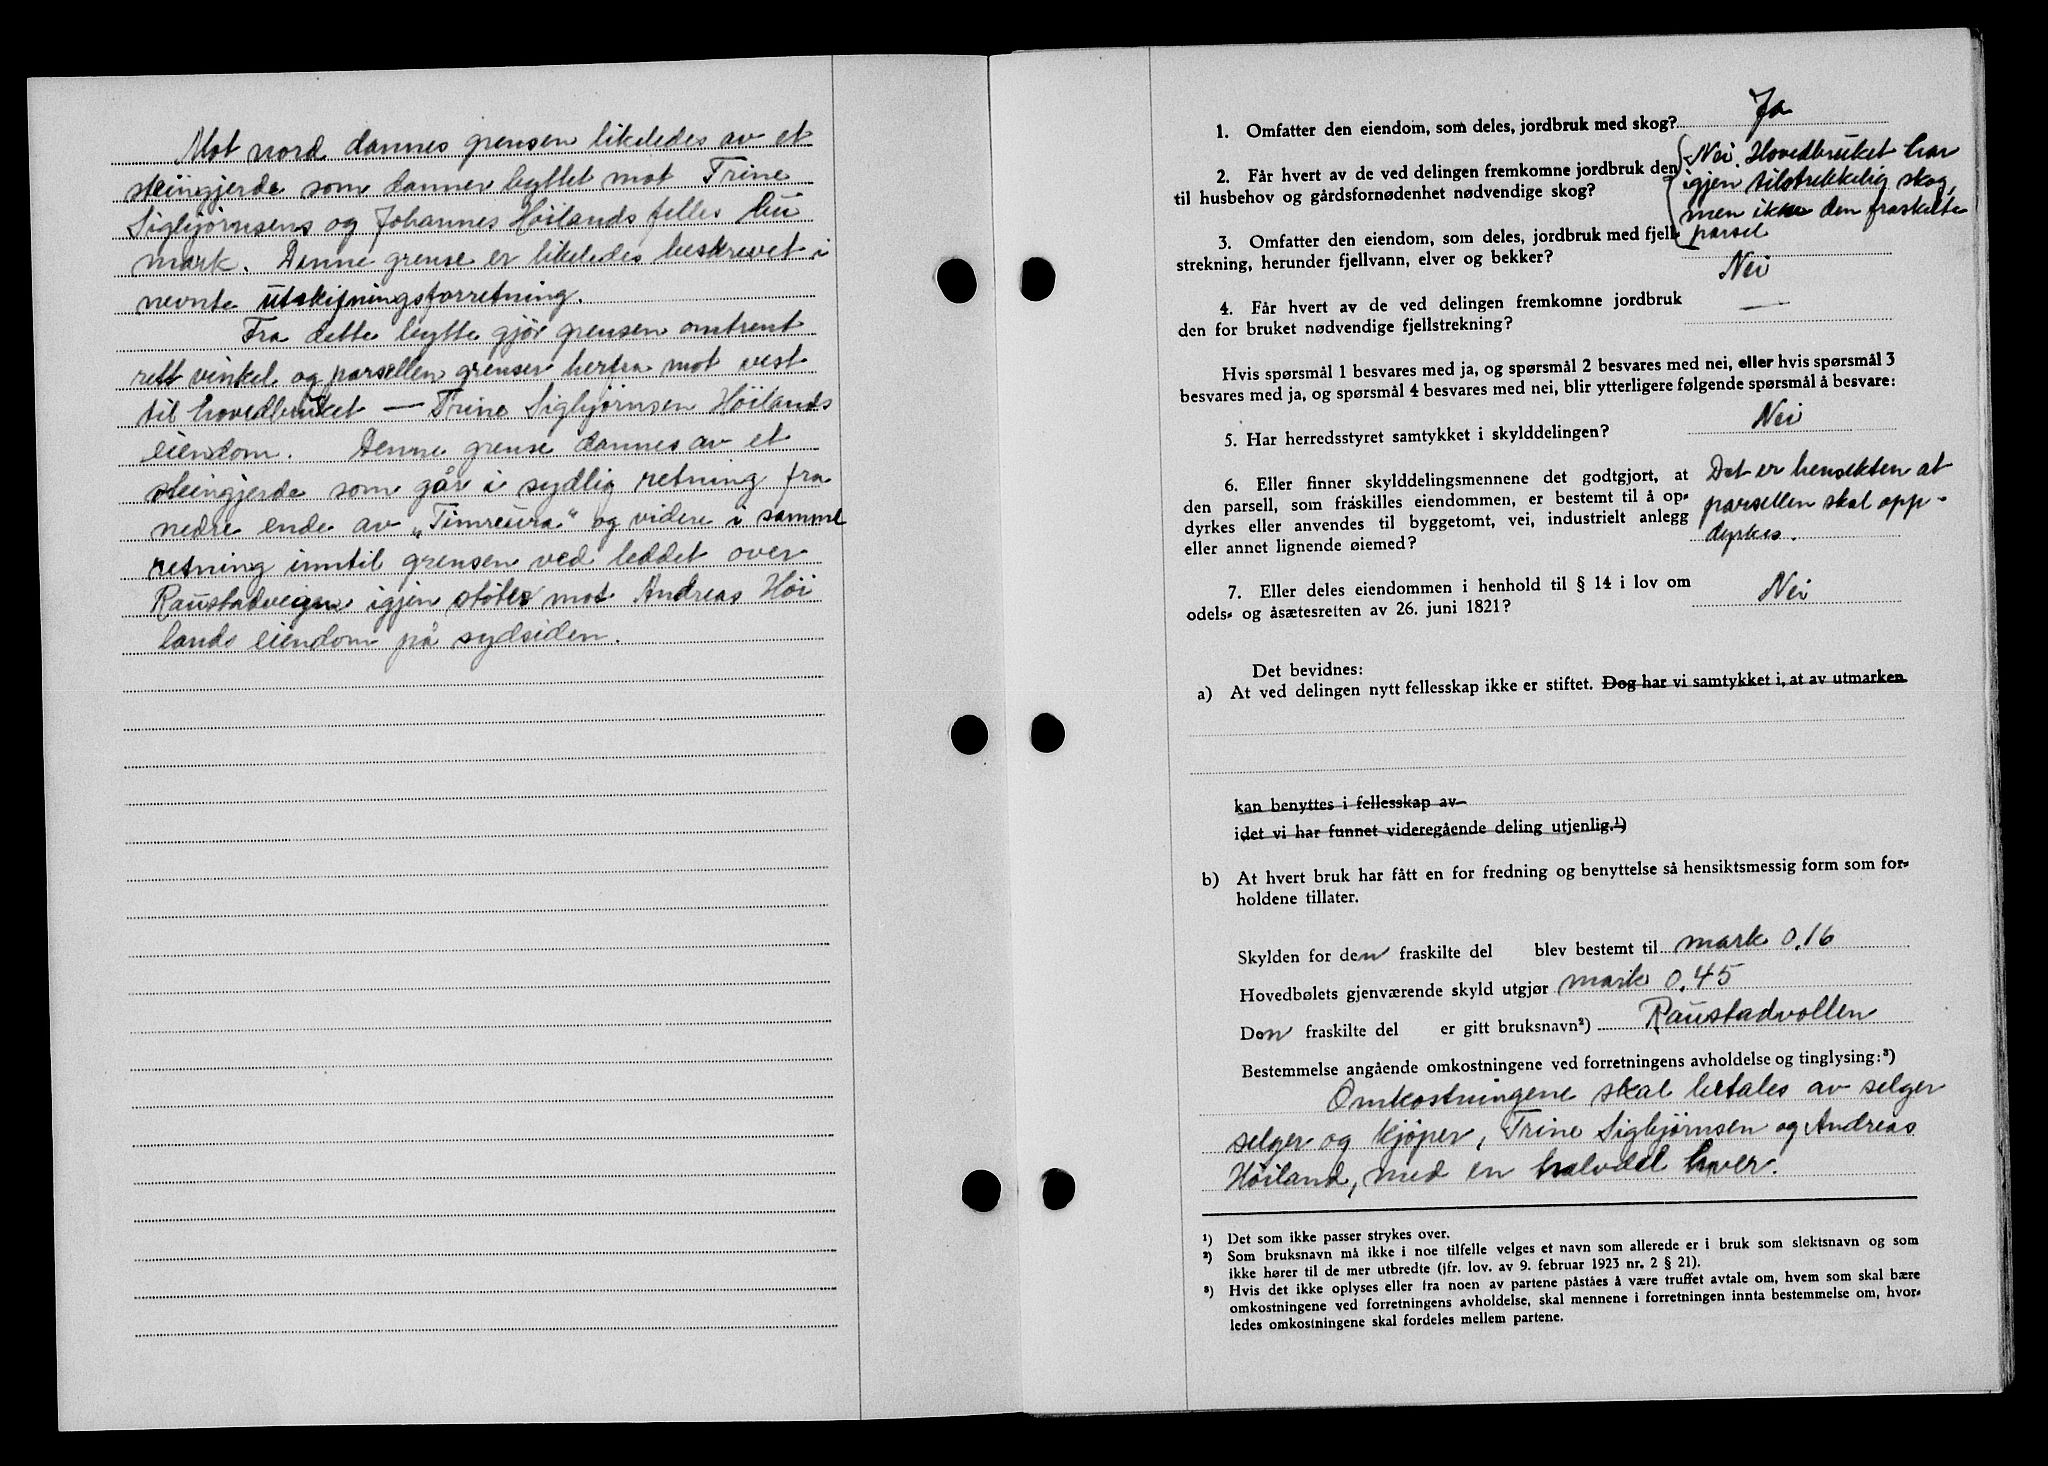 Mot nord dannes grensen likeledes av et
steingjerde som danner byttet mot Trine
Sigbjørnsens og Johannes Höilands felles bu
mark. Denne grense er likeledes beskrevet i
nevnte utskiftningsforretning.
Fra dette bytte gjør grensen omtrent
rett vinkel og parsellen grenser herfra mot vest
til hovedbruket — Trine Sigbjørnsen Höilands
eiendom. Denne grense dannes av et
steingjerde som går i sydlig retning fra
nedre ende av „Timreura" og videre i samme
retning inntil grensen ved leddet over
Raustadveien igjen støter mot Andreas Höi
lands eiendom på sydsiden.
1. Omfatter den eiendom, som deles, jordbruk med skog? Ja
2. Får hvert av de ved delingen fremkomne jordbruk den
til husbehov og gårdsfornødenhet nødvendige skog?
Nei. Hovedbruket har
igjen tilstrekkelig skog,
men ikke den fraskilte
parsel
3. Omfatter den eiendom, som deles, jordbruk med fjell-
strekning, herunder fjellvann, elver og bekker? Nei
4. Får hvert av de ved delingen fremkomne jordbruk
den for bruket nødvendige fjellstrekning? —
Hvis spørsmål 1 besvares med ja, og spørsmål 2 besvares med nei, eller hvis spørsmål 3
besvares med ja, og spørsmål 4 besvares med nei, blir ytterligere følgende spørsmål å besvare:
5. Har herredsstyret samtykket i skylddelingen? Nei
6. Eller finner skylddelingsmennene det godtgjort, at
den parsell, som fraskilles eiendommen, er bestemt til å op-
dyrkes eller anvendes til byggetomt, vei, industrielt anlegg
eller annet lignende øiemed?
Det er hensikten at
parsellen skal opp-
dyrkes.
7. Eller deles eiendommen i henhold til § 14 i lov om
odels- og åsætesretten av 26. juni 1821? Nei
Det bevidnes:
a) At ved delingen nytt fellesskap ikke er stiftet. Dog har vi samtykket i, at av utmarken
kan benyttes i fellesskap av
idet vi har funnet videregående deling utjenlig.¹)
b) At hvert bruk har fått en for fredning og benyttelse så hensiktsmessig form som for-
holdene tillater.
Skylden for den fraskilte del blev bestemt til mark 0.16
Hovedbølets gjenværende skyld utgjør mark 0.45
Den fraskilte del er gitt bruksnavn²) Raustadvollen
Bestemmelse angående omkostningene ved forretningens avholdelse og tinglysing:³)
Omkostningene skal betales av selger
selger og kjøper, Trine Sigbjørnsen og Andreas
Höiland, med en halvdel hver.
¹) Det som ikke passer strykes over.
²) Som bruksnavn må ikke i noe tilfelle velges et navn som allerede er i bruk som slektsnavn og som
ikke hører til de mer utbredte (jfr. lov. av 9. februar 1923 nr. 2 § 21).
³) Hvis det ikke oplyses eller fra noen av partene påståes å være truffet avtale om, hvem som skal bære
omkostningene ved forretningens avholdelse, skal mennene i forretningen innta bestemmelse om, hvor-
ledes omkostningene skal fordeles mellem partene.